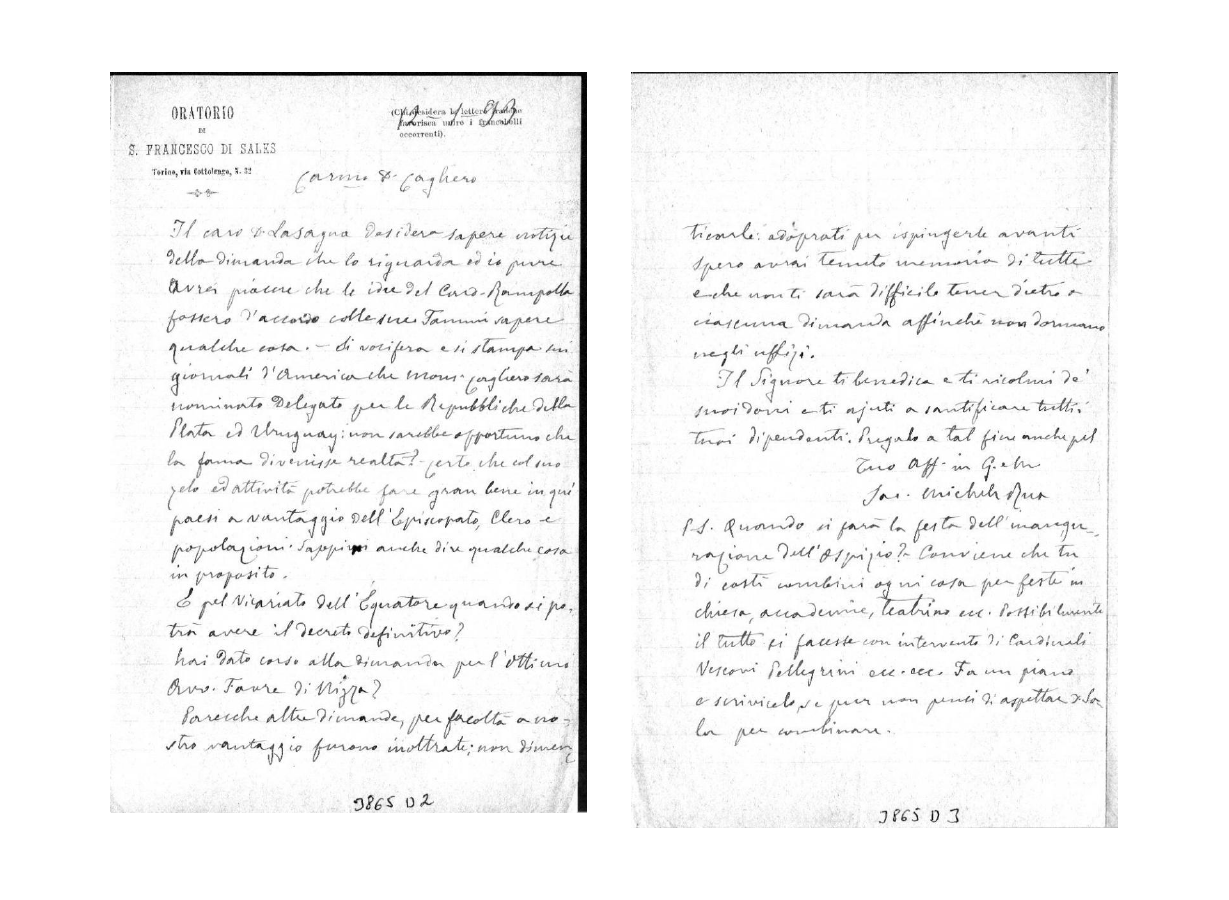 ORATORIO
DI
S. FRANCESCO DI SALES
Torino, via Cottolengo, N. 32
(Chi desidera le lettere franche
favorisca unire i francobolli
occorrenti).
12 1 93
Car.mo D. Cagliero
Il caro D. Lasagna desidera sapere notizie
della dimanda che lo riguarda ed io pure
avrei piacere che le idee del Card. Rampolla
fossero d'accordo colle sue. Fammi sapere
qualche cosa. — Si vocifera e si stampa sui
giornali d'America che Mons. Cagliero sarà
nominato Delegato per le Repubbliche della
Plata ed Uruguay: non sarebbe opportuno che
la fama divenisse realtà? Certo che col suo
zelo ed attività potrebbe fare gran bene in quei
paesi a vantaggio dell'Episcopato, Clero e
popolazioni. Sappimi anche dire qualche cosa
in proposito.
E pel Vicariato dell'Equatore quando si po-
trà avere il decreto definitivo?
hai dato corso alla dimanda per l'ottimo
Avv. Favre di Nizza?
Parecchie altre dimande, per facoltà a no-
stro vantaggio furono inoltrate; non dimen
ticarle: adoprati per ispingerle avanti
spero avrai tenuto memoria di tutte
e che non ti sarà difficile tener dietro a
ciascuna dimanda affinchè non dormano
negli uffizi.
Il Signore ti benedica e ti ricolmi de'
suoi doni e ti ajuti a santificare tutti i
tuoi dipendenti. Pregalo a tal fine anche pel
Tuo Aff. in G. e M.
Sac. Michele Rua
P.S. Quando si farà la festa dell'inaugu-
razione dell'Ospizio? Conviene che tu
di costì combini ogni cosa per feste in
chiesa, accademie, teatrino ecc. Possibilmente
il tutto si facesse con intervento di Cardinali
Vescovi Pellegrini ecc. ecc. Fa un piano
e scrivicelo, se pur non pensi di aspettare D. Sa
la per combinare.
3865 D 2
3865 D 3